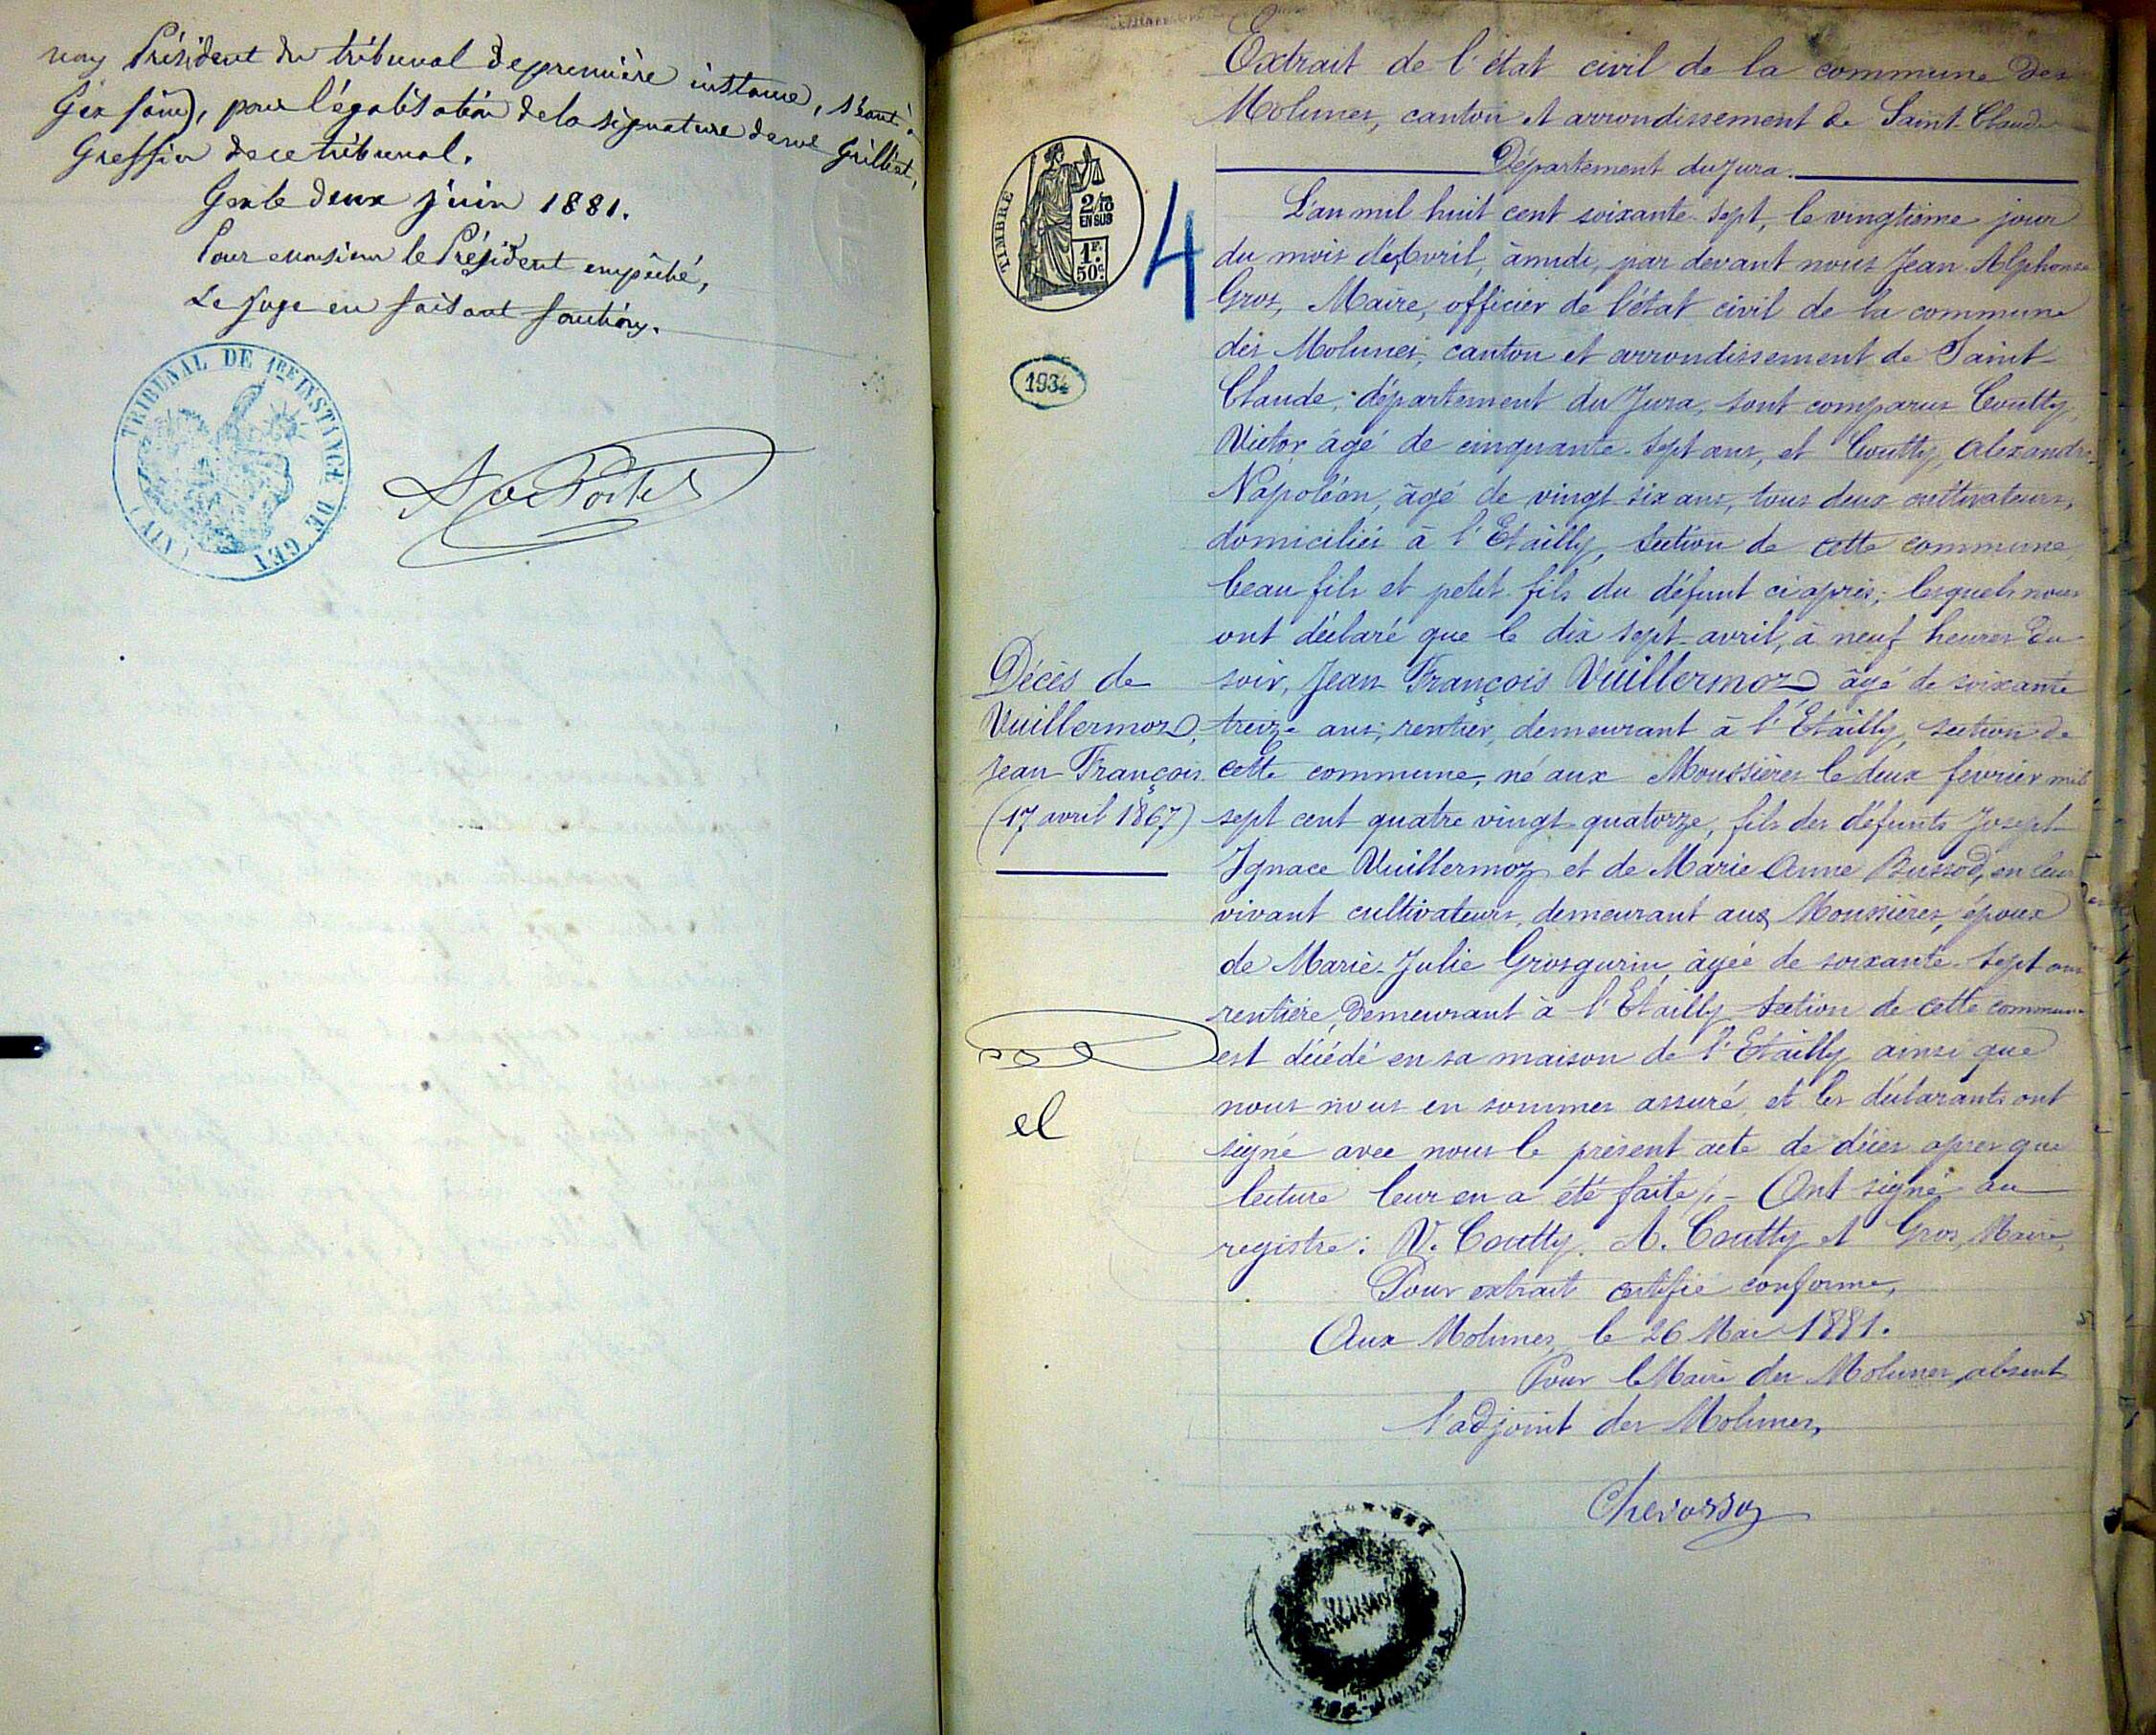 Président du tribunal de première instance, séant à
Gex (ain), pour légalisation de la signature de me Grilliet,
Greffier de ce tribunal.
Gex le deux juin 1881.
Pour monsieur le Président empêché,
Le Juge en faisant fonctions.
TRIBUNAL DE 1RE INSTANCE DE GEX (AIN)
Extrait de l'état civil de la commune des
Molunes, canton et arrondissement de Saint-Claude
Département du Jura.
TIMBRE
2/10
EN SUS
1F.
50c
4
1934
L'an mil huit cent soixante-sept, le vingtième jour
du mois d'Avril, à midi, par devant nous Jean-Alphonse
Gros, Maire, officier de l'état civil de la commune
des Molunes, canton et arrondissement de Saint
Claude, département du Jura, sont comparus Coutty,
Victor, âgé de cinquante-sept ans, et Coutty, Alexandre-
Napoléon, âgé de vingt-six ans, tous deux cultivateurs,
domiciliés à l'Etailly, section de cette commune,
beau fils et petit-fils du défunt ci après; lesquels nous
ont déclaré que le dix sept avril, à neuf heures du
soir, Jean François Vuillermoz âgé de soixante
treize ans, rentier, demeurant à l'Etailly, section de
cette commune, né aux Moussières le deux fevrier mil
sept cent quatre vingt quatorze, fils des défunts Joseph
Ignace Vuillermoz et de Marie Anne Bussod, en leur
vivant cultivateurs, demeurant aux Moussières, époux
de Marie-Julie Grosgurin, âgée de soixante-sept ans
rentière, demeurant à l'Etailly section de cette commune
est décédé en sa maison de l'Etailly ainsi que
nous nous en sommes assuré, et les déclarants ont
signé avec nous le présent acte de décès apres que
lecture leur en a été faite/.- Ont signé au
registre: V. Coutty. A. Coutty et Gros, Maire,
Décès de
Vuillermoz,
Jean François.
(17 avril 1867)
Pour extrait certifié conforme,
Aux Molunes, le 26 Mai 1881.
Pour le Maire des Molunes, absent
l'adjoint des Molunes,